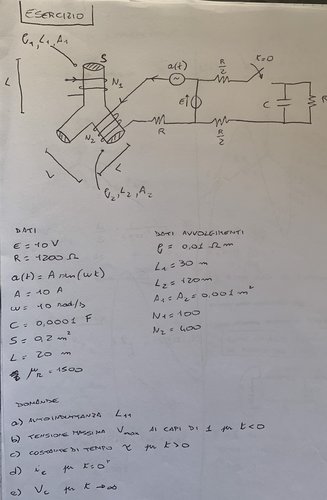 ESERCIZIO
ρ1, L1, A1
S
L
N1
N2
a(t)
R/2
t=0
E
C
R
R
R/2
L
L
ρ2, L2, A2
DATI
E = 10 V
R = 1200 Ω
a(t) = A sin(ωt)
A = 10 A
ω = 10 rad/s
C = 0,0001 F
S = 0,2 m²
L = 20 m
μR = 1500
DATI AVVOLGIMENTI
ρ = 0,01 Ω m
L1 = 30 m
L2 = 120 m
A1 = A2 = 0,001 m²
N1 = 100
N2 = 400
DOMANDE
a) AUTOINDUTTANZA L11
b) TENSIONE MASSIMA Vmax AI CAPI DI 1 per t<0
c) COSTANTE DI TEMPO τ per t>0
d) ic per t=0⁺
e) Vc per t→∞